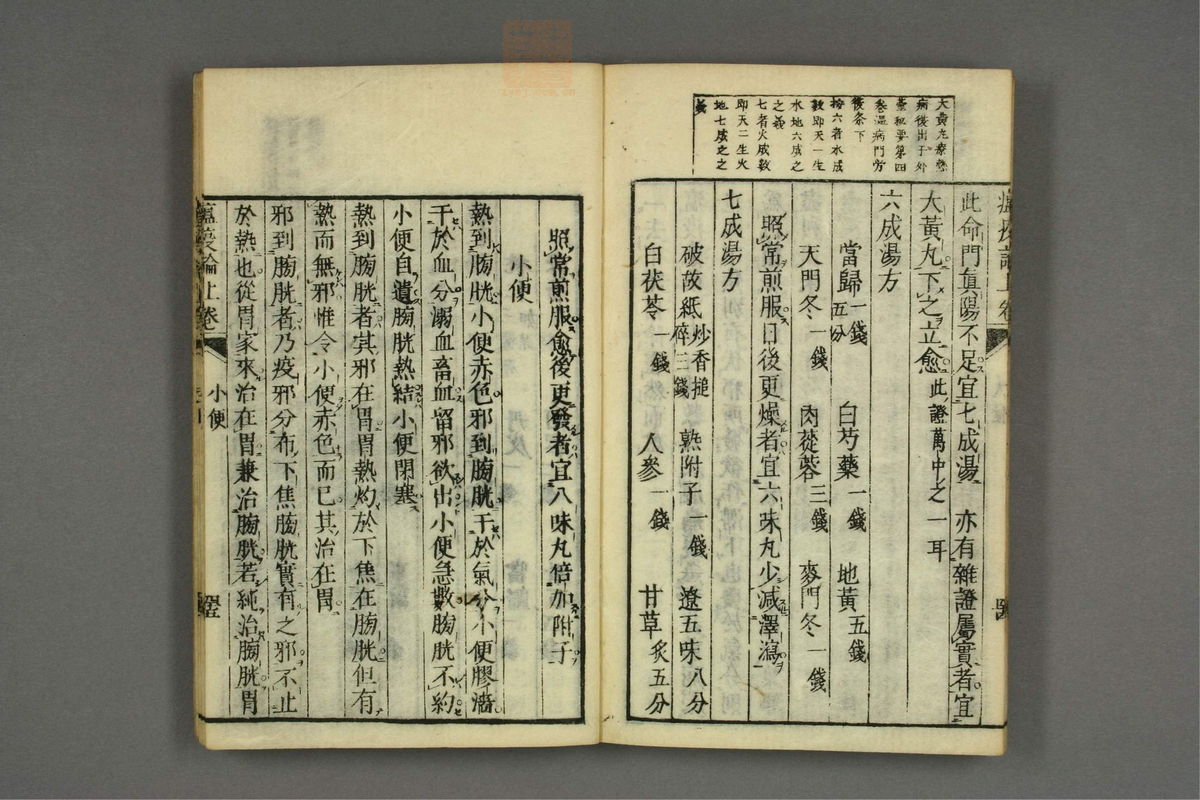 大黄丸療熱
病後出于外
臺秘要第四
卷溫病門方
後条下
按六者水成
數即天一生
水地六成之
之義
七者火成數
即天二生火
地七成之之
義
此命門眞陽不足宜七成湯 亦有雜證屬實者宜
大黃丸下之立愈此證萬中之一耳
六成湯方
當歸一錢五分 白芍藥一錢 地黃五錢
天門冬一錢 肉蓯蓉三錢 麥門冬一錢
照常煎服日後更燥者宜六味丸少减澤瀉
七成湯方
破故紙炒香搥碎三錢 熟附子一錢 遼五味八分
白茯苓一錢 人參一錢 甘草炙五分
照常煎服愈後更發者宜八味丸倍加附子
小便
熱到膀胱小便赤色邪到膀胱干於氣分小便膠濇
干於血分溺血畜血留邪欲出小便急數膀胱不約
小便自遺膀胱熱結小便閉塞
熱到膀胱者其邪在胃胃熱灼於下焦在膀胱但有
熱而無邪惟令小便赤色而已其治在胃
邪到膀胱者乃疫邪分布下焦膀胱實有之邪不止
於熱也從胃家來治在胃兼治膀胱若純治膀胱胃
瘟疫論上卷 小便